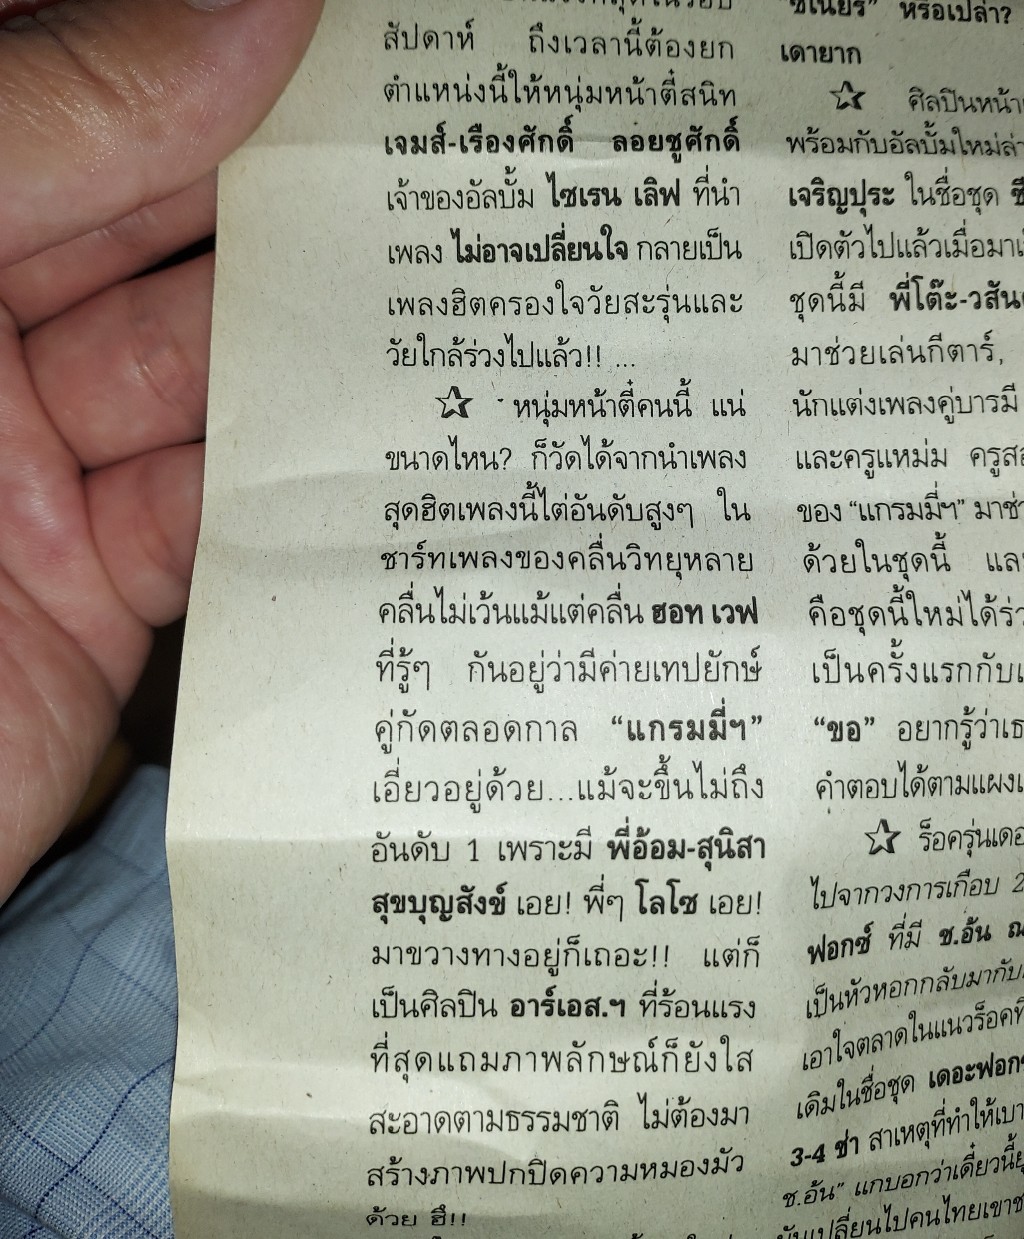 สัปดาห์ ถึงเวลานี้ต้องยก
ตำแหน่งนี้ให้หนุ่มหน้าตี๋สนิท
เจมส์-เรืองศักดิ์ ลอยชูศักดิ์
เจ้าของอัลบั้ม ไซเรน เลิฟ ที่นำ
เพลง ไม่อาจเปลี่ยนใจ กลายเป็น
เพลงฮิตครองใจวัยสะรุ่นและ
วัยใกล้ร่วงไปแล้ว!! ...
☆ หนุ่มหน้าตี๋คนนี้ แน่
ขนาดไหน? ก็วัดได้จากนำเพลง
สุดฮิตเพลงนี้ไต่อันดับสูงๆ ใน
ชาร์ทเพลงของคลื่นวิทยุหลาย
คลื่นไม่เว้นแม้แต่คลื่น ฮอท เวฟ
ที่รู้ๆ กันอยู่ว่ามีค่ายเทปยักษ์
คู่กัดตลอดกาล “แกรมมี่ฯ”
เอี่ยวอยู่ด้วย...แม้จะขึ้นไม่ถึง
อันดับ 1 เพราะมี พี่อ้อม-สุนิสา
สุขบุญสังข์ เอย! พี่ๆ โลโซ เอย!
มาขวางทางอยู่ก็เถอะ!! แต่ก็
เป็นศิลปิน อาร์เอส.ฯ ที่ร้อนแรง
ที่สุดแถมภาพลักษณ์ก็ยังใส
สะอาดตามธรรมชาติ ไม่ต้องมา
สร้างภาพปกปิดความหมองมัว
ด้วย ฮึ!!
“ซีเนียร์” หรือเปล่า?
เดายาก
☆ ศิลปินหน้า
พร้อมกับอัลบั้มใหม่ล่า
เจริญปุระ ในชื่อชุด
เปิดตัวไปแล้วเมื่อ
ชุดนี้มี พี่โต๊ะ-วสัน
มาช่วยเล่นกีตาร์,
นักแต่งเพลงคู่บารมี
และครูแหม่ม
ของ “แกรมมี่ฯ” มา
ด้วยในชุดนี้
คือชุดนี้ใหม่ได้
เป็นครั้งแรกกับ
“ขอ” อยากรู้ว่า
คำตอบได้ตามแผง
☆ ร็อครุ่น
ไปจากวงการเกือบ 2
ฟอกซ์ ที่มี ช.อ้น ณ
เป็นหัวหอกกลับมากับ
เอาใจตลาดในแนวร็อคที่
เดิมในชื่อชุด เดอะฟอก
3-4 ช่า สาเหตุที่ทำให้
ช.อ้น” แกบอกว่าเดี๋ยวนี้
มันเปลี่ยนไปคนไทยเขา